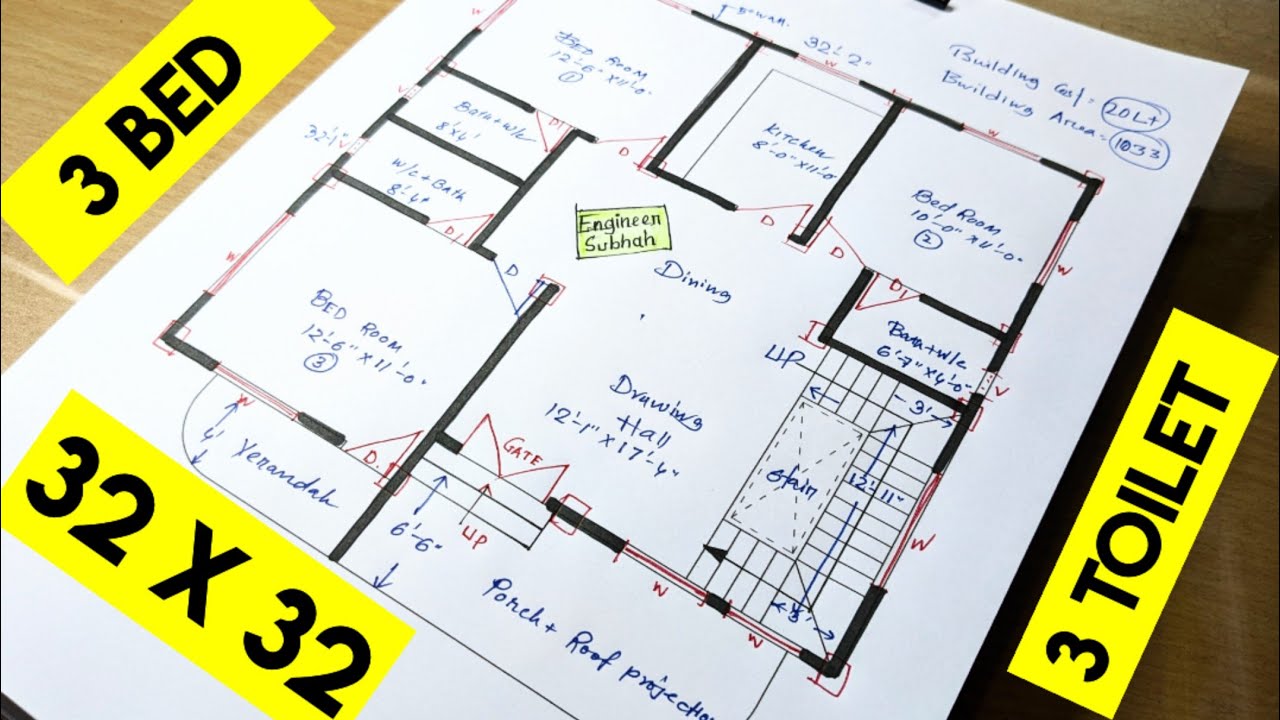 3 BED
32 X 32
3 TOILET
5" WALL
32'-2"
Building Cost = 20L+
Building Area = 1033
BED ROOM
12'-6" X 11'-0"
1
Bath+W/c
8'X4'
W/c+Bath
8'-4'
32'-1"
Kitchen
8'-0" X 11'-0"
Bed Room
10'-0" X 11'-0"
2
Engineer
Subhah
Dining
Bath+W/c
6'-7" X 4'-0"
BED ROOM
12'-6" X 11'-0"
3
Drawing
Hall
12'-1" X 17'-4"
UP
3'
Stair
12'-11"
GATE
UP
4'
Verandah
6'-6"
Porch + Roof projection
3'
D1
D
D
D
D1
D1
D
D
W
W
W
W
W
W
W
W
W
V
V
V